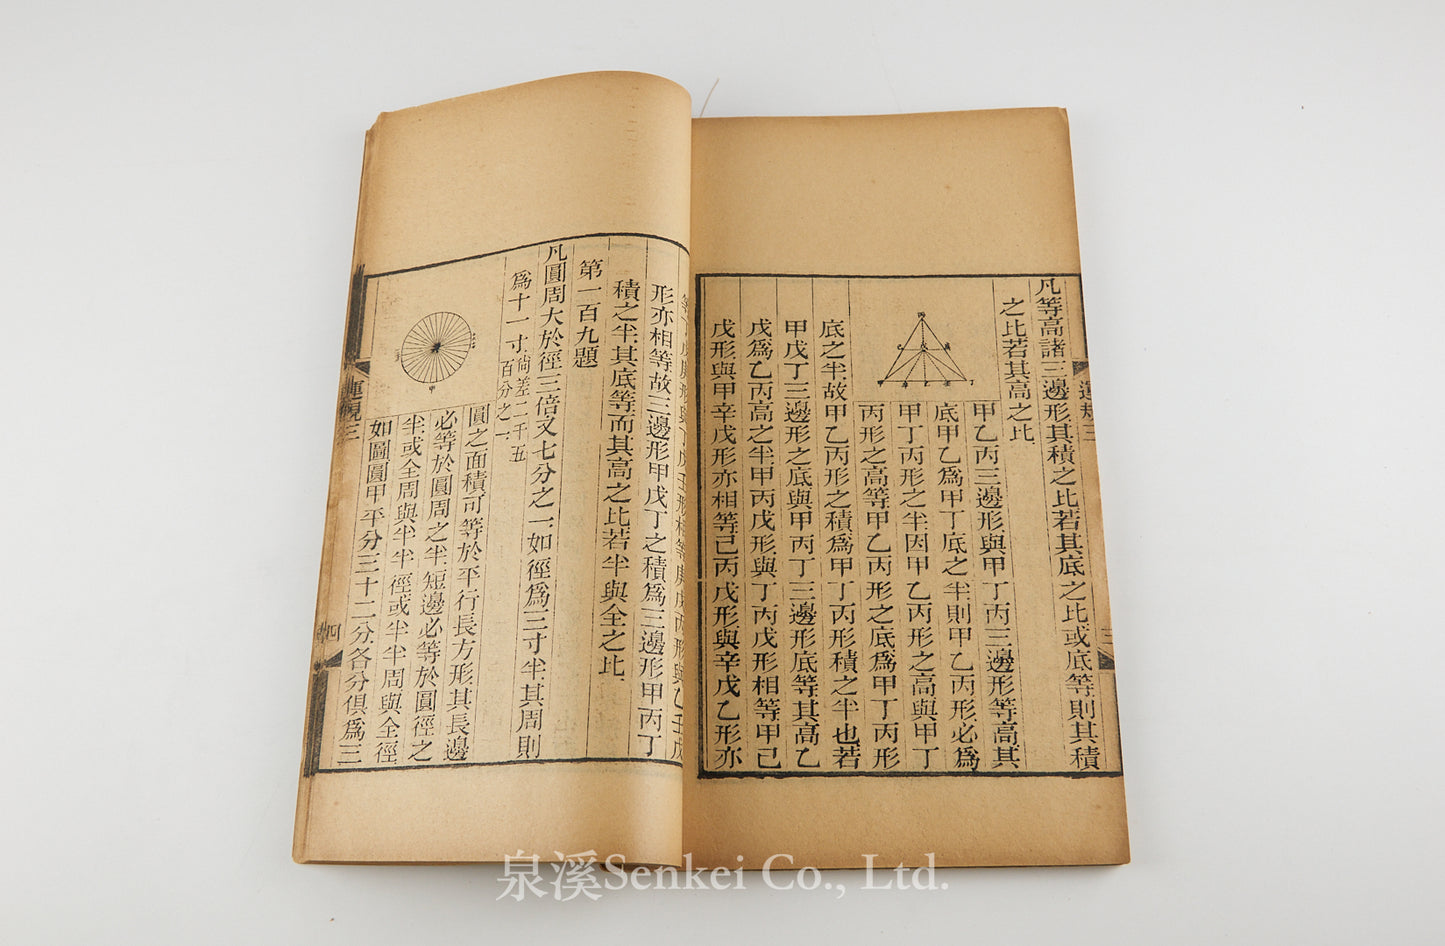 凡等高諸三邊形其積之比若其底之比或底等則其積
之比若其高之比
丙
己 戊 庚
甲 辛 乙 壬 丁
甲乙丙三邊形與甲丁丙三邊形等高其
底甲乙爲甲丁底之半則甲乙丙形必爲
甲丁丙形之半因甲乙丙形之高與甲丁
丙形之高等甲乙丙形之底爲甲丁丙形
底之半故甲乙丙形之積爲甲丁丙形積之半也若
甲戊丁三邊形之底與甲丙丁三邊形底等其高乙
戊爲乙丙高之半甲丙戊形與丁丙戊形相等甲己
戊形與甲辛戊形亦相等己丙戊形與辛戊乙形亦
戊庚形與丁戊壬形相等庚戊丙形與乙壬戊
形亦相等故三邊形甲戊丁之積爲三邊形甲丙丁
積之半其底等而其高之比若半與全之比
第一百九題
凡圓周大於徑三倍又七分之一如徑爲三寸半其周則
爲十一寸尙差二千五百分之一
甲
圓之面積可等於平行長方形其長邊
必等於圓周之半短邊必等於圓徑之
半或全周與半半徑或半半周與全徑
如圖圓甲平分三十二分各分俱爲三
運規三
三
運規三
四
泉溪Senkei Co., Ltd.